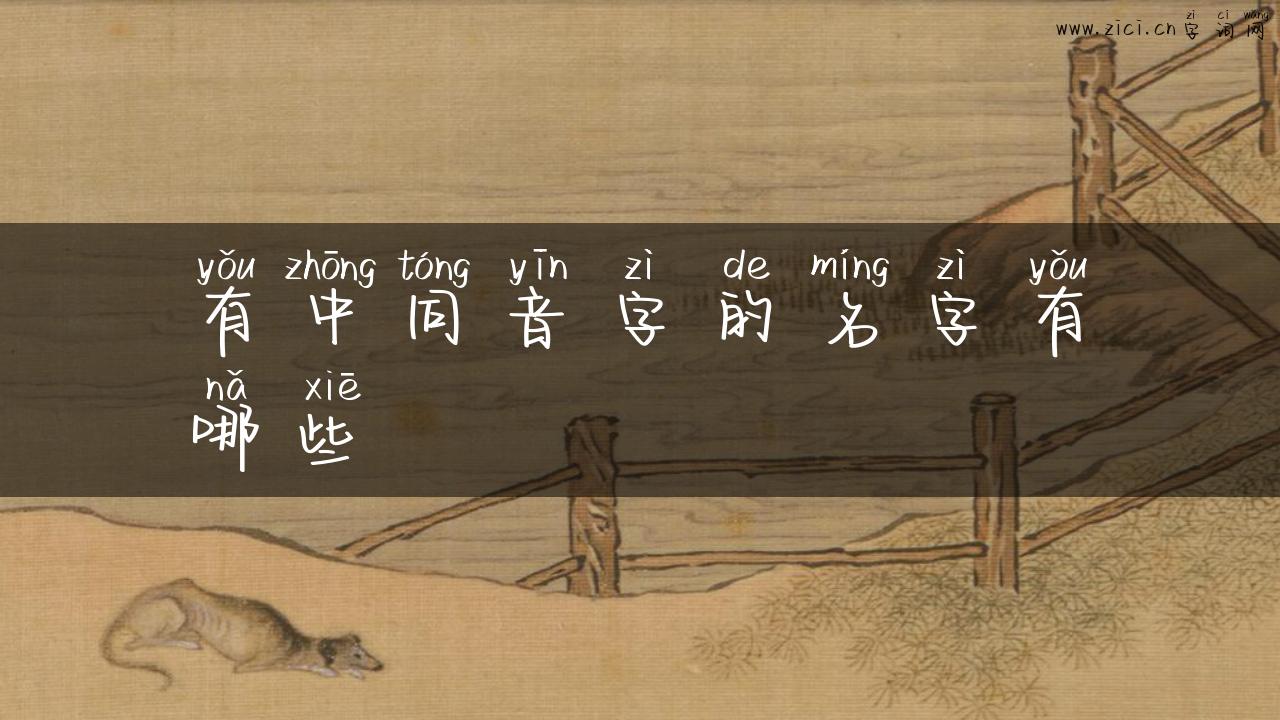 zì cí wǎng
www.zici.cn 字词网
yǒu zhōng tóng yīn zì de míng zì yǒu
有中同音字的名字有
nǎ xiē
哪些